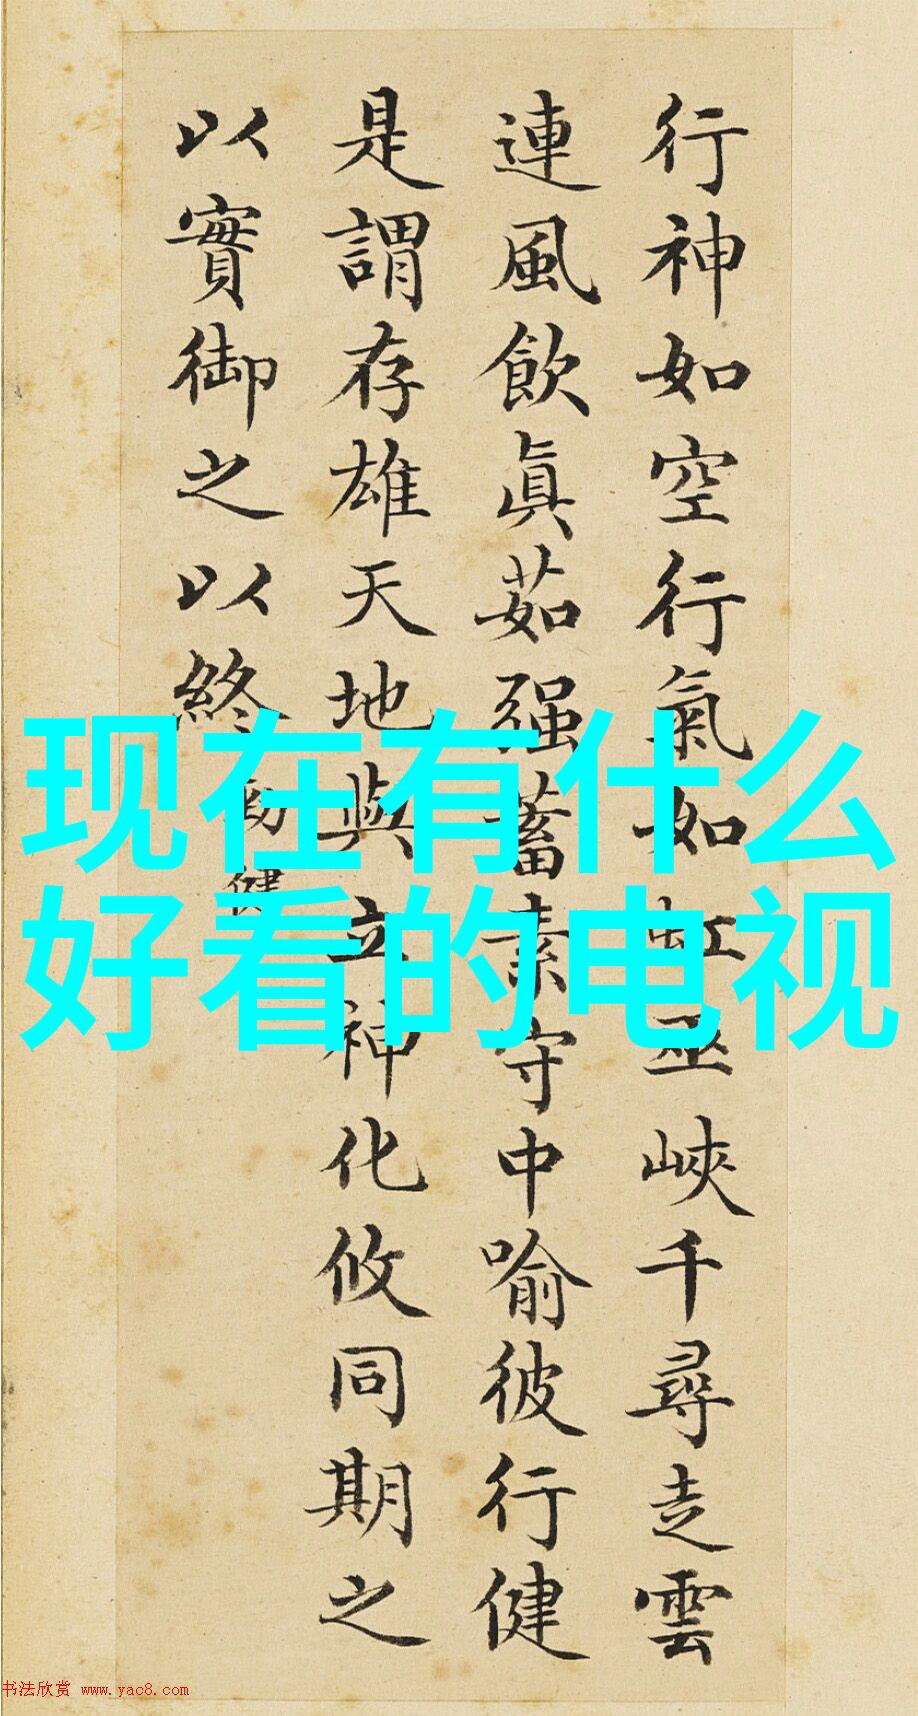 行神如空行氣如虹巫峽千尋走雲
連風飲眞茹强蓄素守中喻彼行健
是謂存雄天地與立神化攸同期之
以實御之以終
勁健
现在有什么
好看的电视
书法欣赏 www.yac8.com